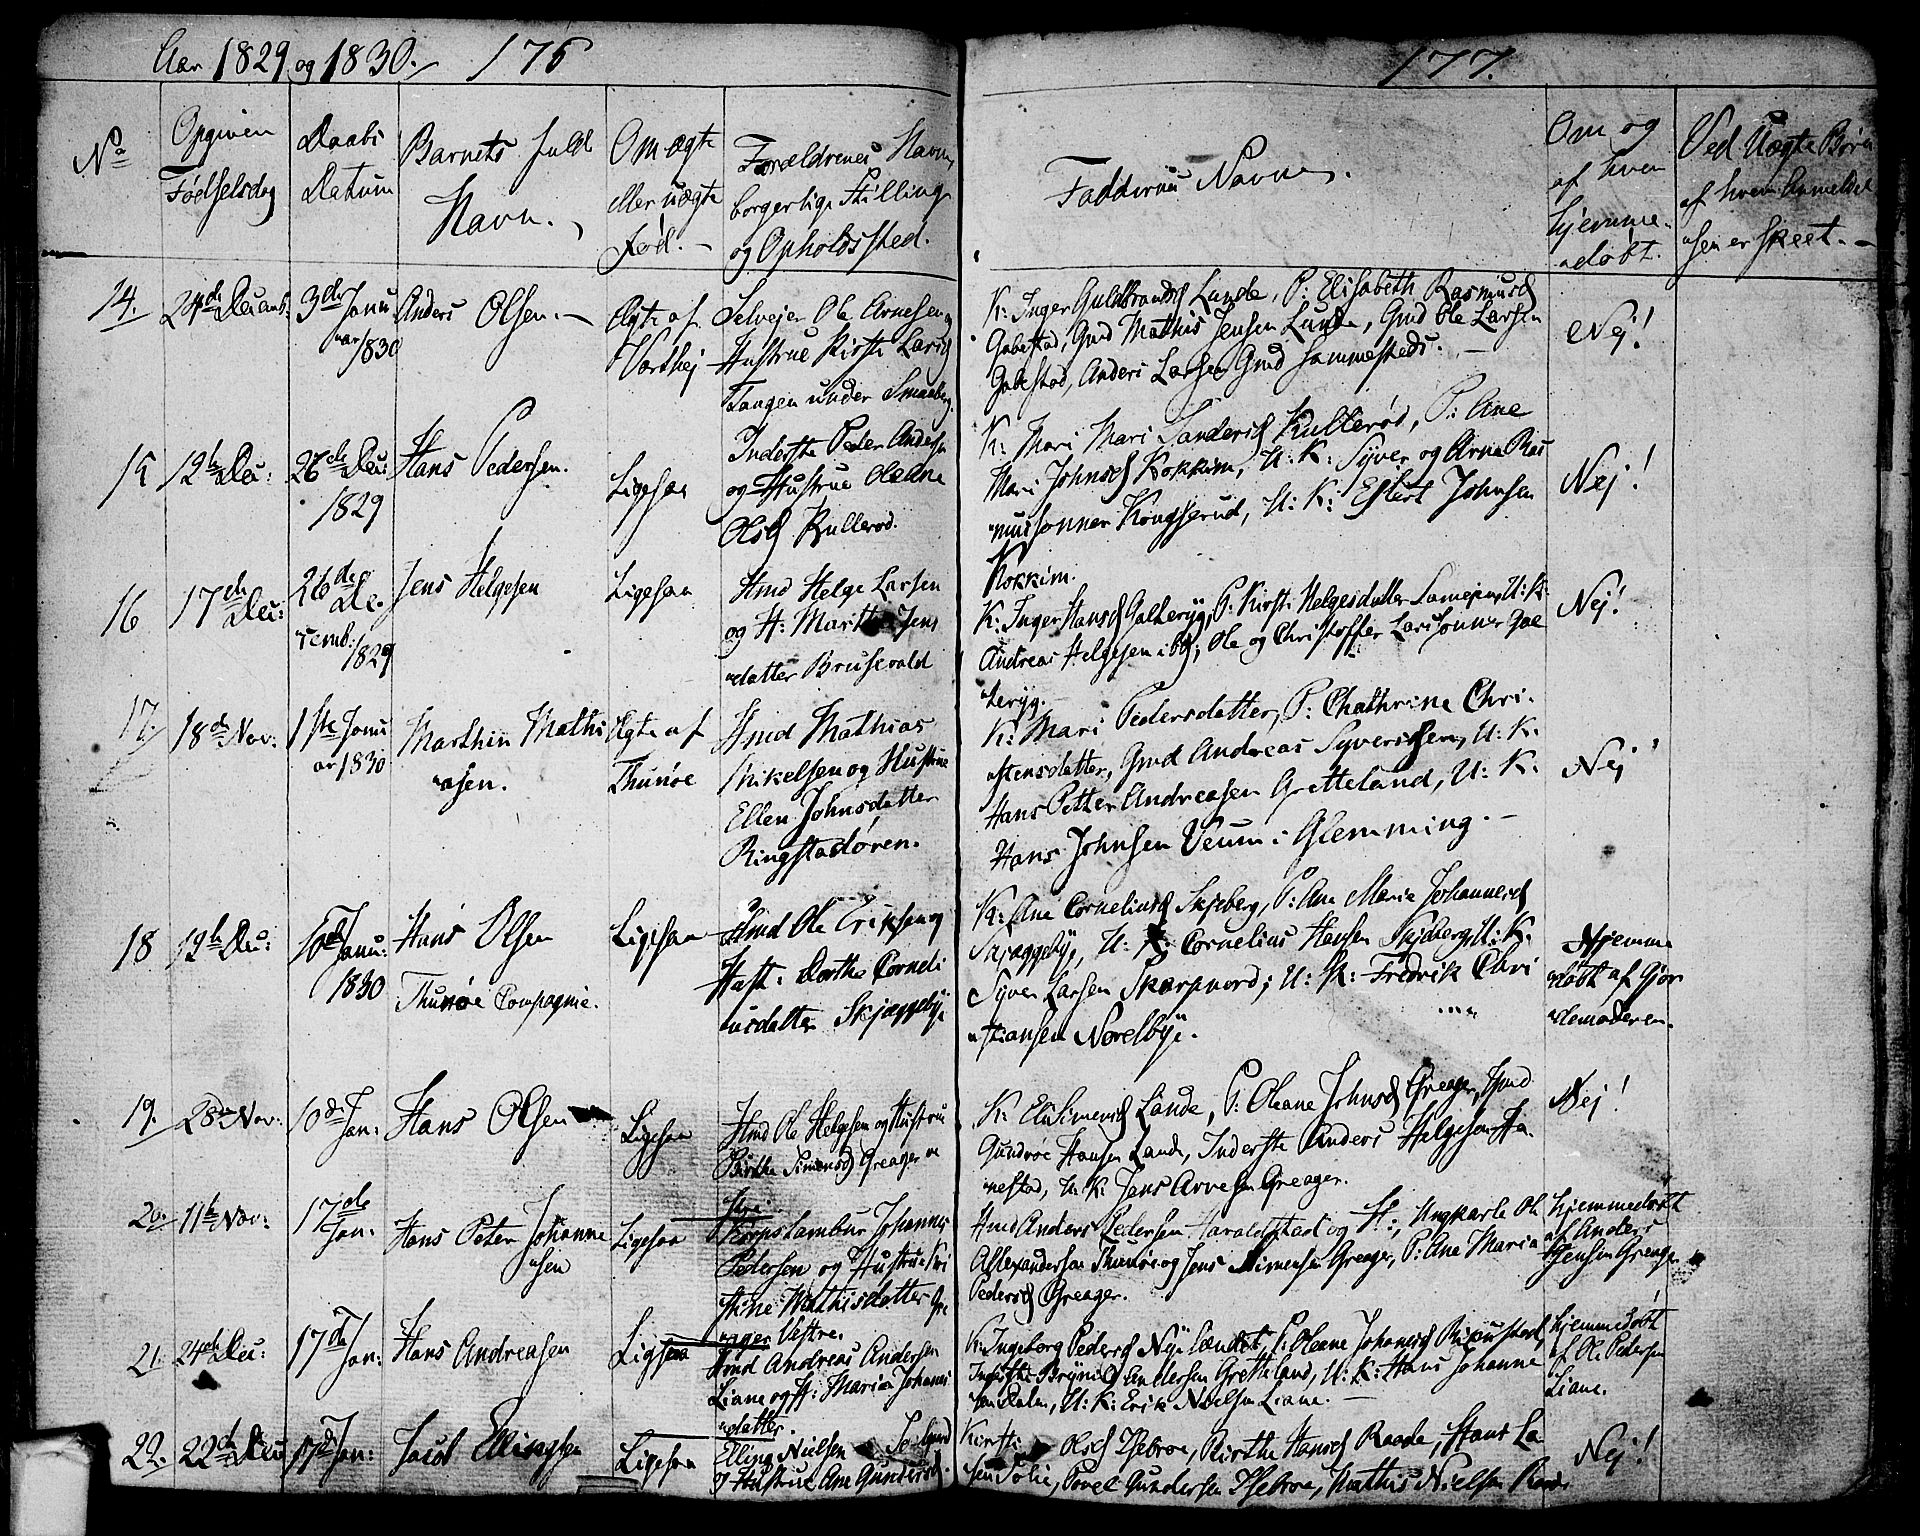 Aar 1829 og 1830. 176
177.
No
Opgiven
Fødselsdag
Daabs
Datum
Barnets fuld
Navn.
Om ægte
eller uægte
Fød.
Forældrenes Navn,
borgerlige Stilling
og Opholdssted.
Faddernes Navne.
Om og
af hvem
hjemme-
døbt.
Ved Uægte Børn
af hvem Anmeldel
sen er skeet.
14.
24de Decemb:
3die Janu
uar 1830
Anders Olsen.
Ægte af
Varthej
Selvejer Ole Arnesen og
Hustrue Kirsti Larsd
Tangen under Smaaberg.
K: Inger Guldbrandsd Lunde, P: Elisabeth Rasmusd
Gabestad, Gmd Mathis Jensen Lunde, Gmd Ole Larsen
Gabestad, Anders Larsen Gmd Hammersteds.
Nej!
15
12te Dec:
26de Dec:
1829
Hans Pedersen.
Ligesaa
Inderste Peder Andersen
og Hustrue Oleane
Olsd Kullerød.
K: Mari Mari Sandersd Kullerød, P: Ane
Mari Johnsd Kokkim, U: K: Syver og Arne Ras
mussønner Kongserud, U: K: Ejlert Johnsen
Kokkim.
Nej!
16
17de Dec:
26de De
cemb: 1829
Jens Helgesen
Ligesaa
Hmd Helge Larsen
og H: Marthe Jens
datter Brusevald
K: Inger Hansd Galteryg, P: Kirsti Helgesdatter, U: K:
Andreas Helgesen ibd; Ole og Christoffer Larssønner Gal
teryg.
Nej!
17.
18de Nov:
1ste Janu
ar 1830
Marthin Mathi
asen.
Ægte af
Thunøe
Hmd Mathias
Mikelsen og Hustrue
Ellen Johnsdatter
Ringstadøren.
K: Mari Pedersdatter, P: Chathrine Chri-
stensdatter, Gmd Andreas Syversen, U: K:
Hans Petter Andreasen Gretteland, U: K:
Hans Johnsen Veum i Glemming.
Nej!
18
19de Dec:
10de Janu:
1830
Hans Olsen
Thunøe Compagnie.
Ligesaa
Hmd Ole Eriksen og
Hust: Dorthe Corneli
usdatter Skjæggebye
K: Ane Corneliusd Skjeberg, P: Ane Marie Johannesd
Skjæggebye, U: K: Cornelius Hansen Skjeberg, U: K:
Syver Larsen Skarpnord; U: K: Fredrik Chri
stiansen Nørelbye.
Hjemme
døbt af Gjor
demoderen.
19.
28de Nov:
10de Jan:
Hans Olsen
Ligesaa
Hmd Ole Helgesen og Hustrue
Birthe Simensd Greager
K: Eli Simensd Lande, P: Oleane Johnsd Greager, Hmd
Gundroe Hansen Lande, Inderste Anders Helgesen Ha
nestad, U: K: Jens Arvesen Greager.
Nej!
20.
11te Nov:
17de
Jan:
Hans Peter Johanne
sen
Ligesaa
Korpstambur Johannes
Pedersen og Hustrue Kri
stine Mathisdatter Gre
ager Vestre.
Hmd Anders Pedersen Haraldstad og H:, Ungkarle Ole
Allexandersen Thunøe og Jens Simensen Greager, P: Ane Maria
Pedersd Greager.
hjemmedøbt
af Anders
Jensen Greager
21.
24de Dec:
17de Jan:
Hans Andreasen
Ligesaa
Hmd Andreas Andersen
Liane og H: Maria Johannes
datter.
K: Ingeborg Pedersd Nye, P: Oleane Johannesd
Andersen Gretteland, U: K: Hans Johanne
sen Dalen, U: K: Erik Nielsen Liane.
hjemmedøbt
af Ole Pedersen
Liane.
22.
22de Dec
17de Jan:
Jacob Ellingsen
Ligesaa
Elling Nielsen
Hustrue Ane Gundersd.
Kirsti Olsd Isebroe, Birthe Hansd Raade, Hans La
sen Solie, Povel Gundersen Isebroe, Mathis Nielsen
Nej!